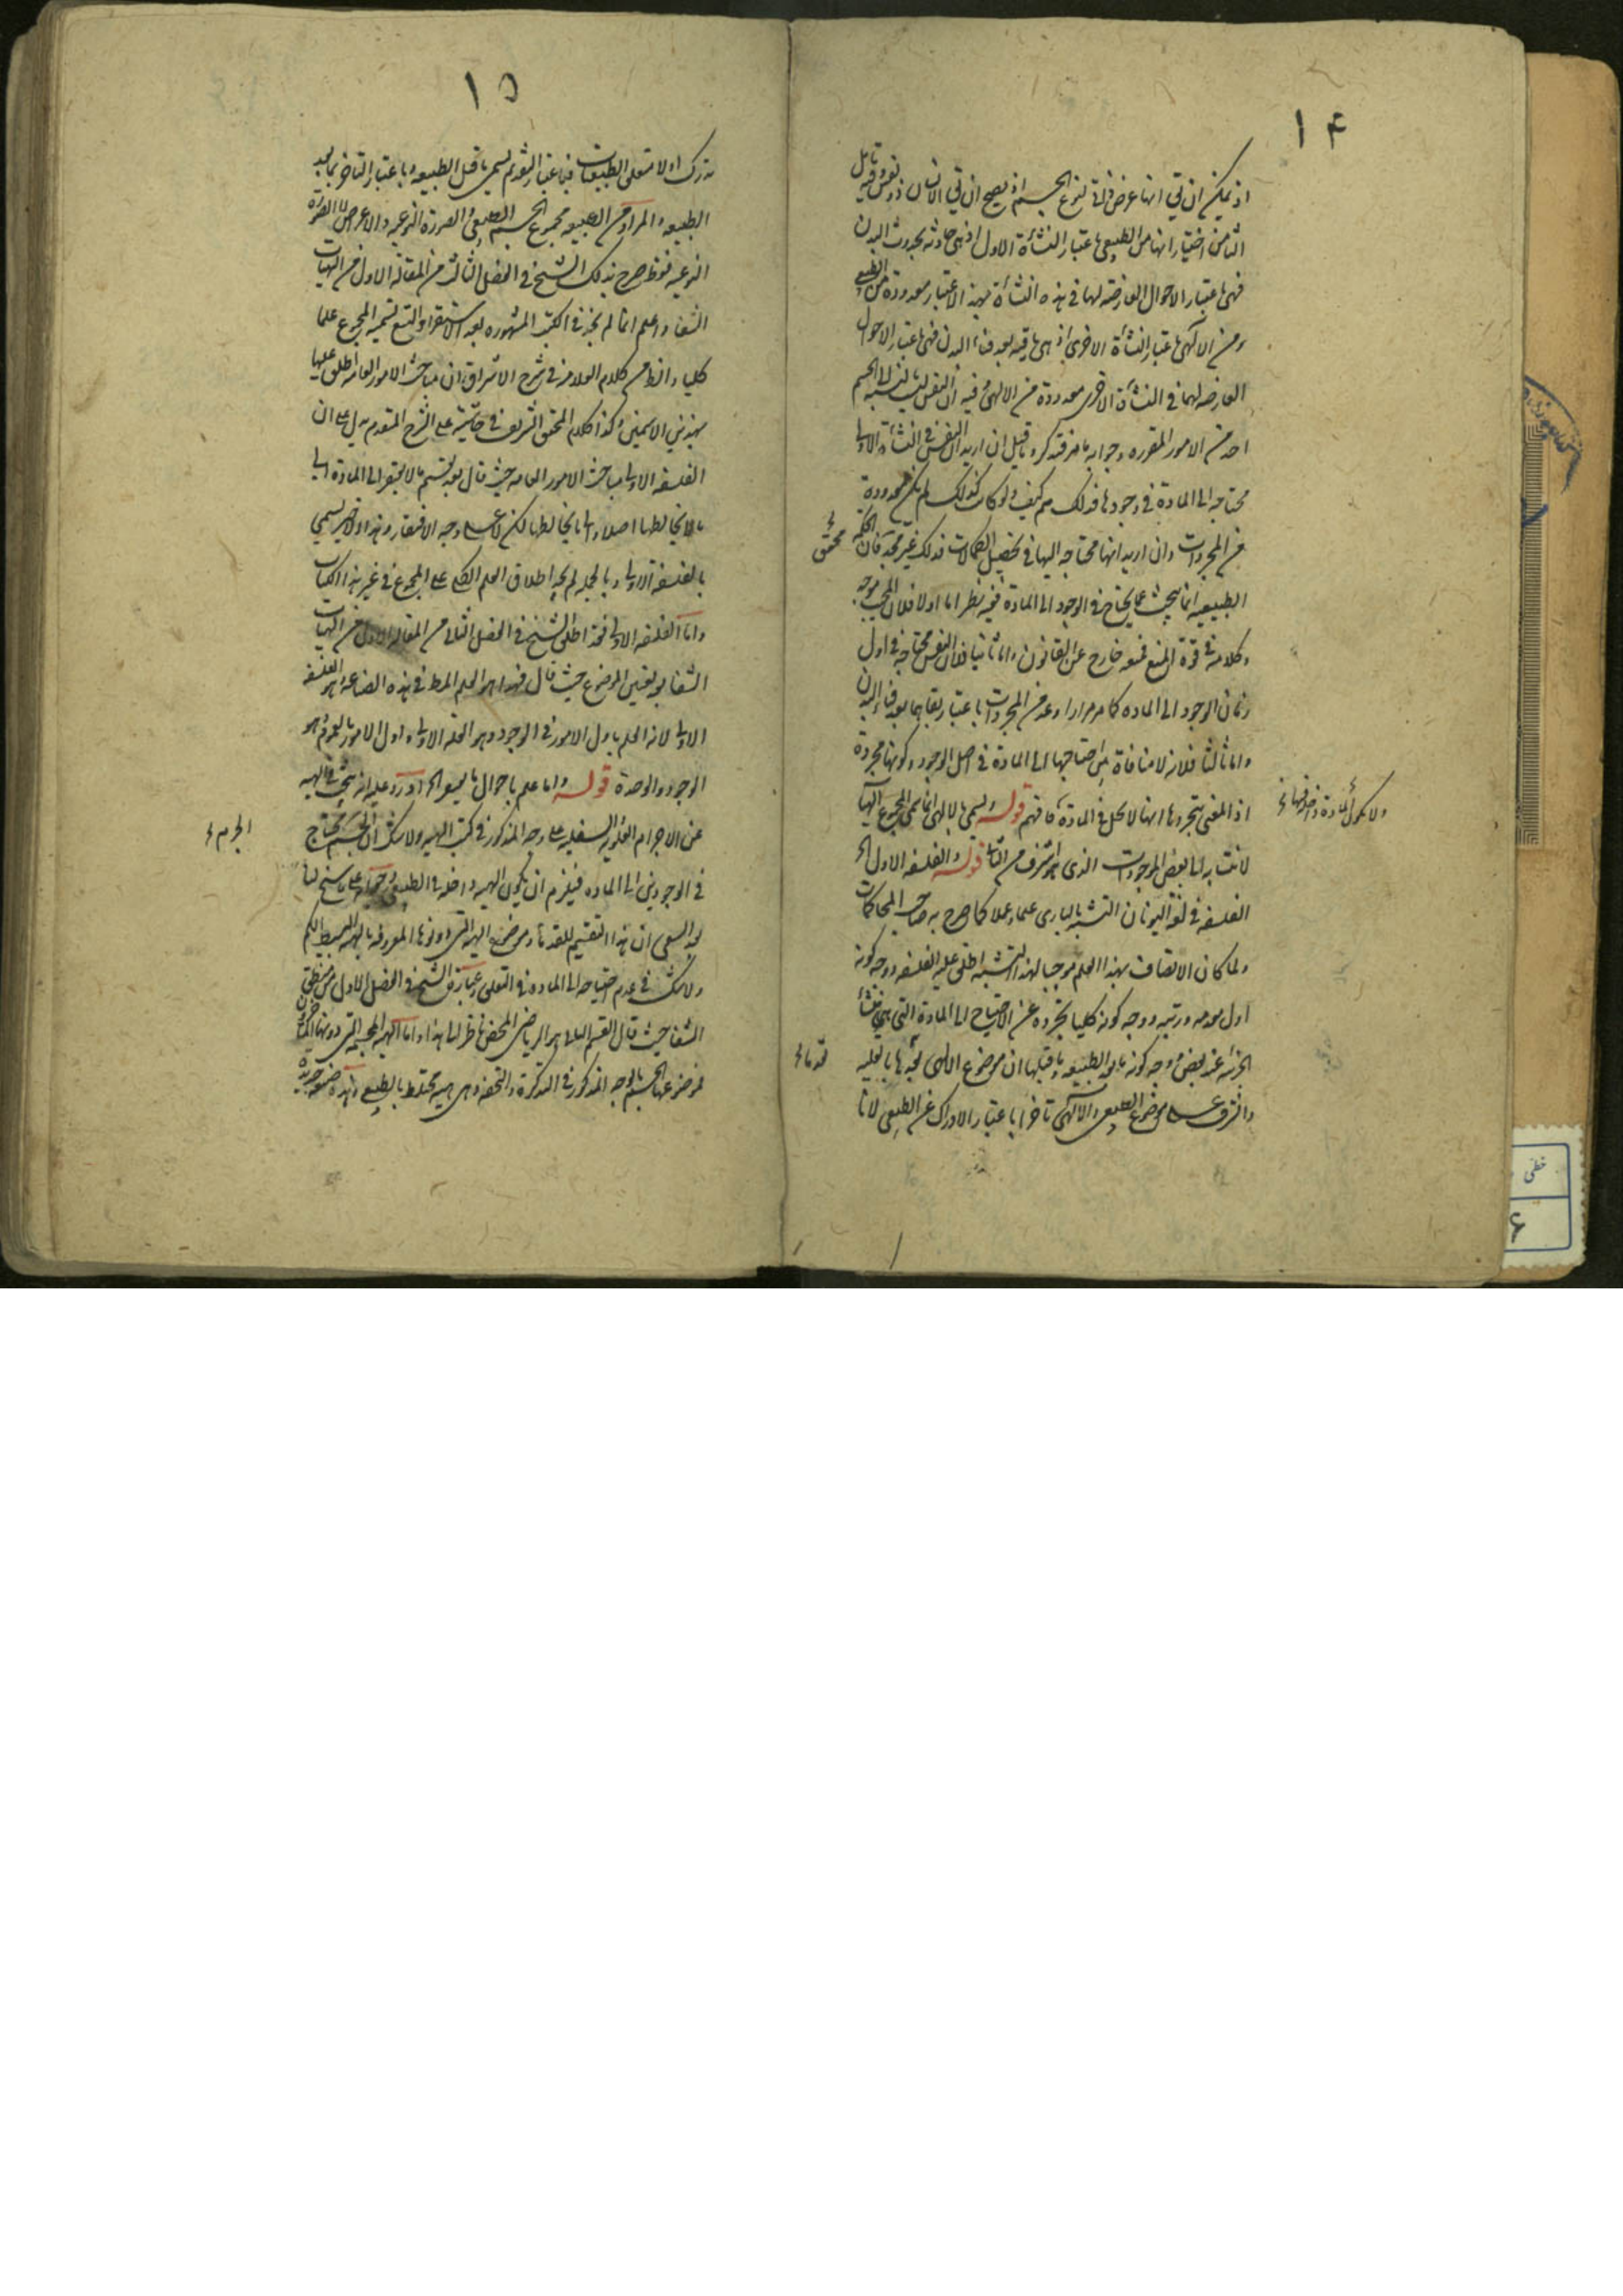 ١۴
اذ يمكن ان يق انها عرض ذاتى لنوع الجسم اذ يصح ان يق الانسان ذو نفس وفيه تامل
الثامن اختيار انها من الطبيعى باعتبار النشأة الاولى اذ هى حادثه بحدوث البدن
فهى باعتبار الاحوال العارضه لها فى هذه النشأة بهذا الاعتبار معدودة من الطبيعى
ومن الالهى باعتبار النشأة الاخرى اذ هى باقيه بعد فناء البدن فهى باعتبار الاحوال
العارضه لها فى النشأة الاخرى معدودة من الالهى وفيه ان النفس ليست بالنسبه الى الجسم
احد من الامور المقوره وجوابه ما مر فتذكر وقيل ان اريد ان النفس فى النشأة الاولى
محتاجه الى المادة فى وجودها فذلك مم كيف ولو كانت كذلك لم تكن معدودة
من المجردات وان اريد انها محتاجه اليها فى تحصيل الكمالات فذلك غير مجد فان الحكمه
محقق
الطبيعيه انما يبحث عما يحتاج فى الوجود الى المادة ففيه نظر اما اولا فلان المجيب موجه
وكلامه فى قوة المنع فمنعه خارج عن القانون واما ثانيا فلان النفس محتاجه فى اول
زمان الوجود الى الماده كما مر مرارا وعد من المجردات باعتبار بقائها بعد فناء البدن
واما ثالثا فلانه لا منافاة بين احتياجها الى المادة فى اصل الوجود وكونها مجردة
اذ المعنى بتجردها انها لا تحل فى المادة فافهم قوله ويسمى بالالهى انما سمى المجموع الهيا
ولا تكون المادة داخلة فيها
لانتسابه الى بعض الموجودات الذى هو اشرف من الكل قوله والفلسفه الاولى الخ
الفلسفه فى لغة اليونان التشبه بالبارى علما وعملا كما صرح به صاحب المحاكمات
ولما كان الاتصاف بهذا العلم موجبا لهذا التشبه اطلق عليه الفلسفه ووجه كونه
اولى عمومه ورتبه ووجه كونه كليا تجرده عن الاحتياج الى المادة التى هى منشأ
الجزئيه عند بعض ووجه كونه ما بعد الطبيعه وما قبلها ان موضوع الالهى
قدما
واشرف على موضوع الطبيعى والالهى تاخرا باعتبار الادراك عن الطبيعى لانا
١۵
ندرك اولا متعلق الطبيعيات فباعتبار التقدم يسمى ما قبل الطبيعه وباعتبار التاخر بما بعد
الطبيعه والمراد من الطبيعه مجموع الجسم الطبيعى والصورة النوعيه والاعراض لا الصورة
النوعيه فقط صرح بذلك الشيخ فى الفصل الثالث من المقالة الاولى من الهيات
الشفا واعلم انا لم نجد فى الكتب المشهوره بعد الاستقراء والتتبع تسمية المجموع علما
كليا والظ من كلام العلامه فى شرح الاشراق ان مباحث الامور العامه اطلق عليها
بهذين الاسمين وكذا كلام المحقق الشريف فى حاشيته على الشرح المتقدم يدل على ان
الفلسفه الاولى مباحث الامور العامه حيث قال بعد تقسيم ما لا يفتقر الى المادة الى
ما لا يخالطها اصلا والى ما يخالطها لكن لا على وجه الافتقار وهذا الاخير يسمى
بالفلسفة الاولى وبالجمله لم نجد اطلاق العلم الكلى على المجموع فى غير هذا الكتاب
واما الفلسفه الاولى فقد اطلق الشيخ فى الفصل الثانى من المقاله الاولى من الهيات
الشفا بعد تعيين الموضوع حيث قال فهذا هو العلم المط فى هذه الصناعه وهو الفلسفه
الاولى لانه العلم باول الامور فى الوجود وهو العلة الاولى واول الامور بالعموم وهو
الوجود والوحدة قوله واما علم باحوال ما يفتقر الخ اورد عليه انه يبحث فى الهيه
عن الاجرام العلويه والسفليه على وجه المذكور فى كتب الهيه ولا شك ان الجسم يحتاج
الجرم
فى الوجودين الى الماده فيلزم ان يكون الهيه داخله فى الطبيعى وجوابه على ما سنح لنا
بعد السعى ان هذا التقسيم للقدماء وموضوع الهيه التى دونوها المعروفه بالهيه البسيط الكم
ولا شك فى عدم احتياجه الى الماده فى التعقل وعبارة الشيخ فى الفصل الاول من منطق
الشفا حيث قال القسم الثانى هو الرياضى المحض ناظر الى هذا واما الهيه المجسمه التى دونها المتاخرون
فموضوعها الجسم بالوجه المذكور فى التذكرة والتحفه وهى هيه مختلط بالطبيعى
خطى
۶